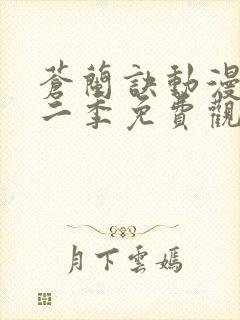 蒼蘭訣動漫
二季免費觀
月下雲嫣